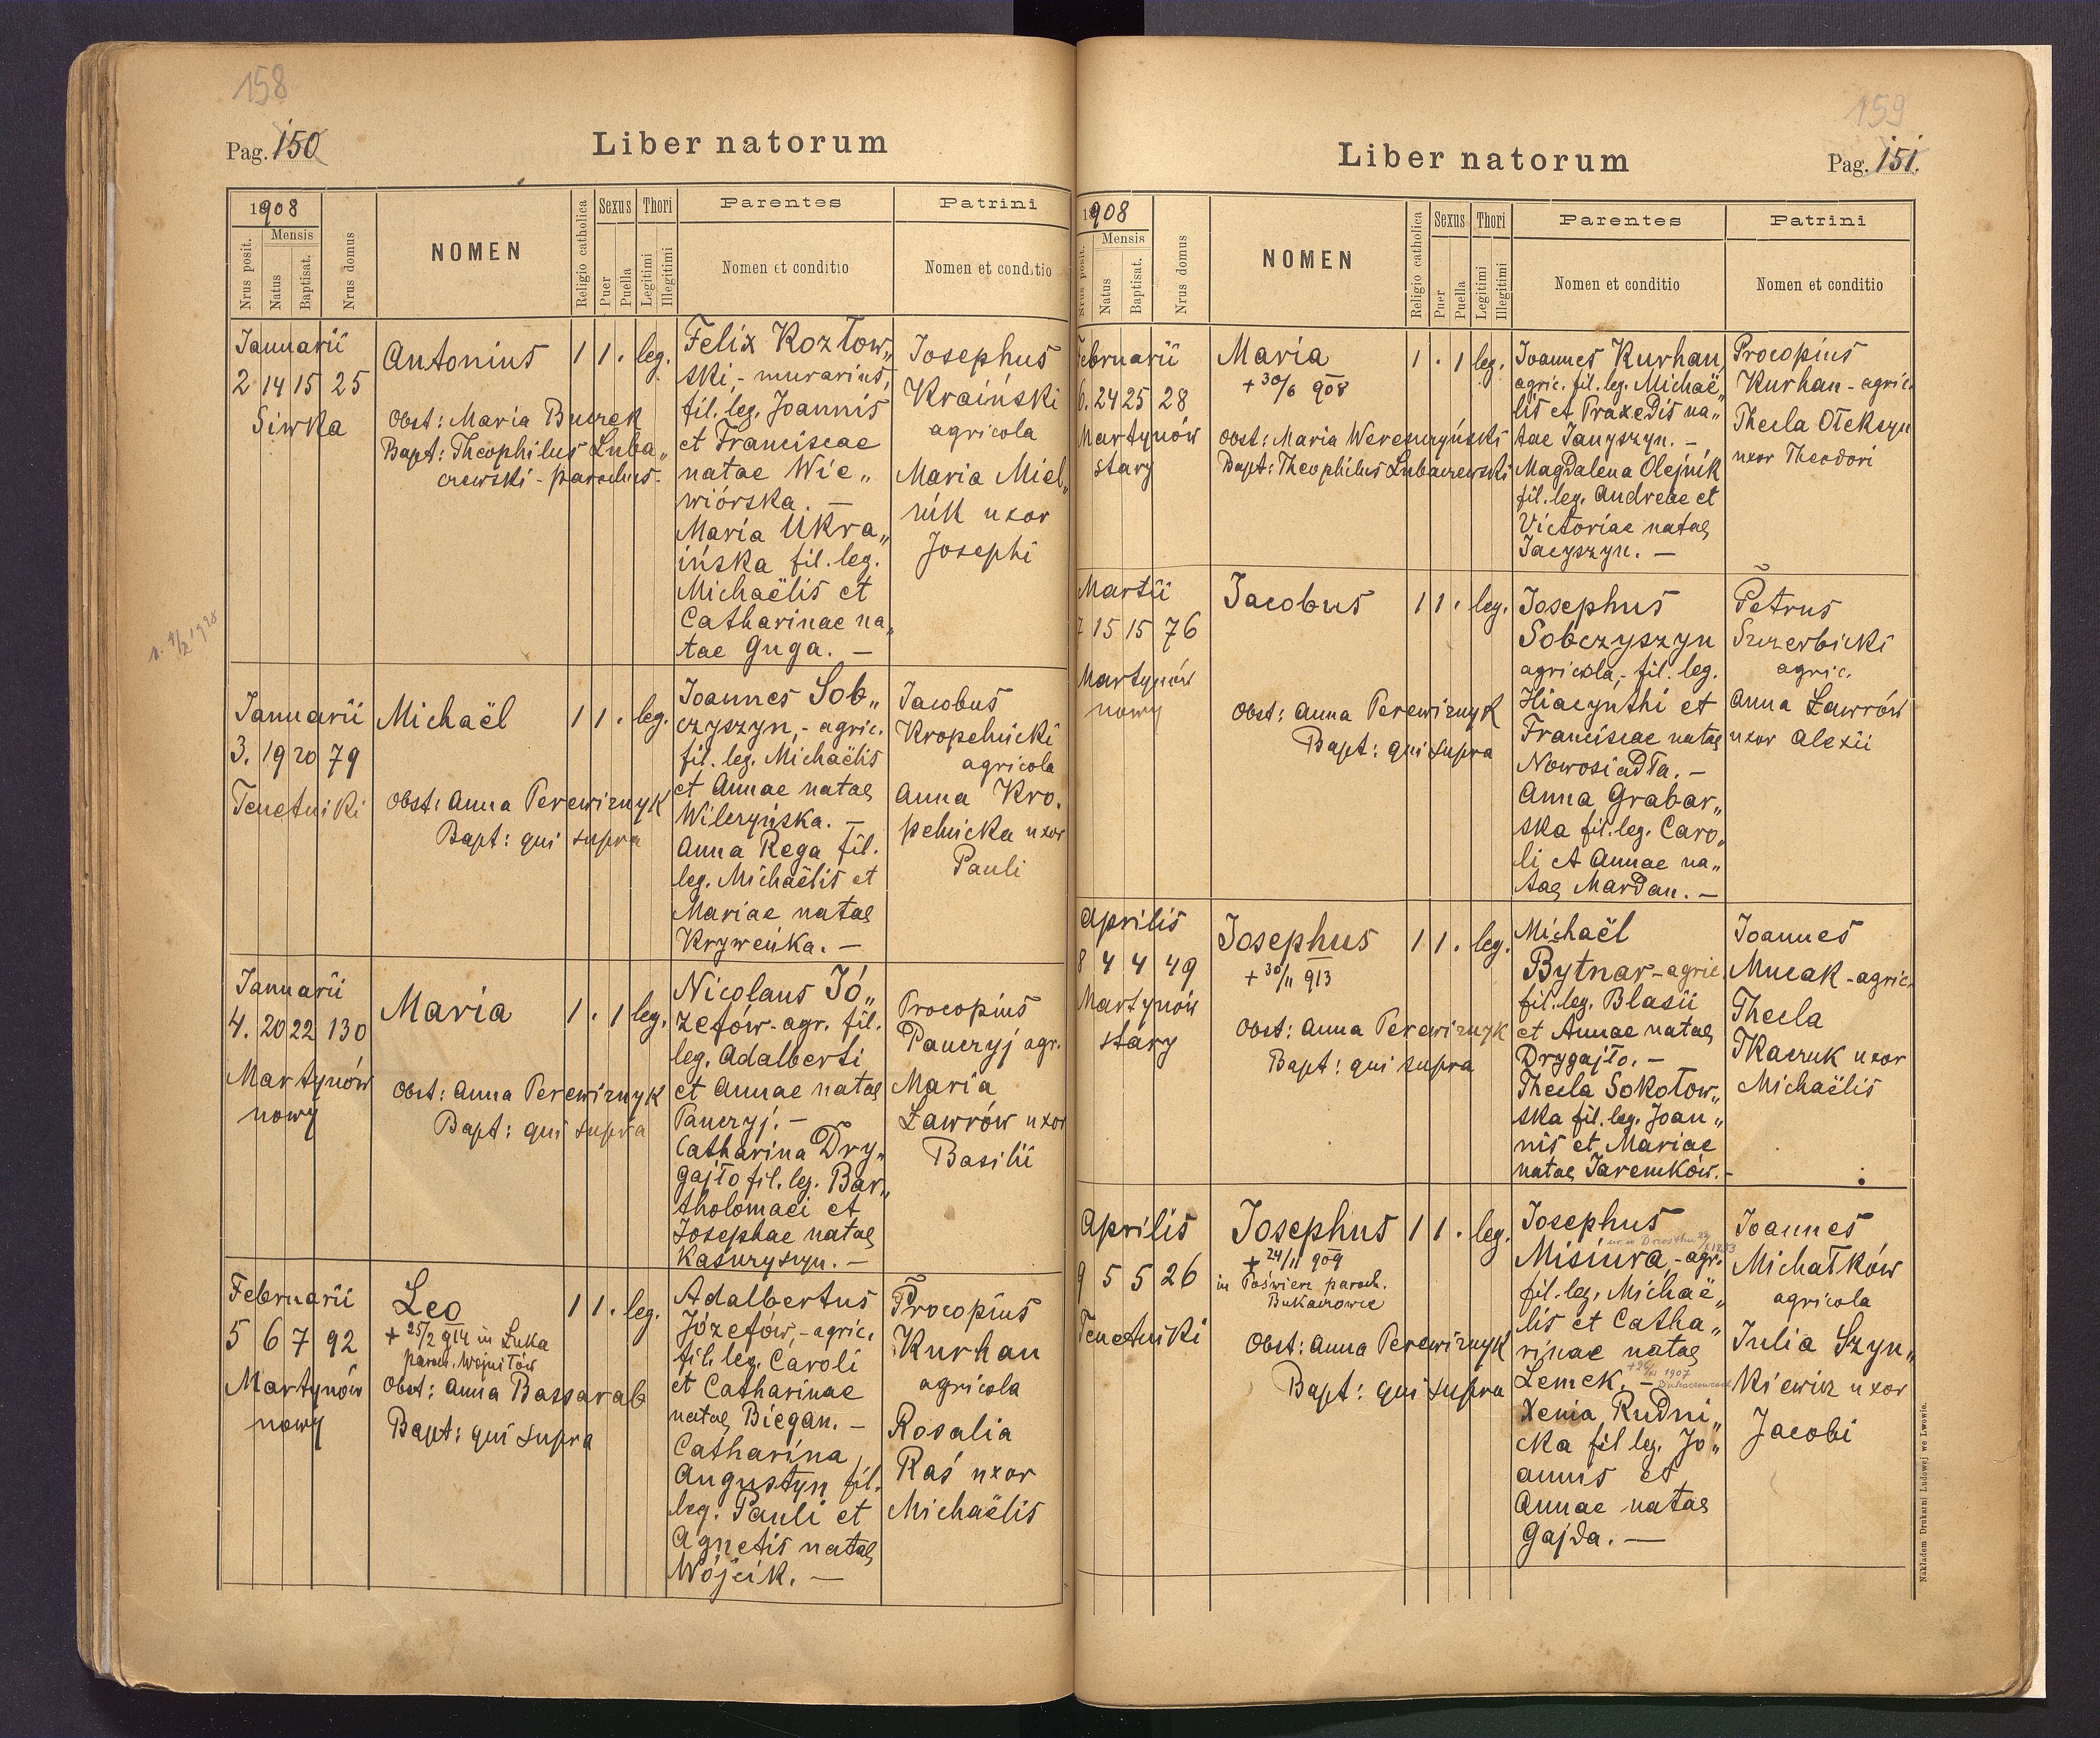 158
Pag. 150
Liber natorum
1908
Nrus posit.
Mensis
Natus
Baptisat.
Nrus domus
NOMEN
Religio catholica
Sexus
Puer
Puella
Thori
Legitimi
Illegitimi
Parentes
Nomen et conditio
Patrini
Nomen et conditio
Januarii
2 14 15 25
Siwka
Antonius
1 1 . leg.
Obst: Maria Burek
Bapt: Theophilus Luba„
czewski - parochus.
Felix Kozłow„
ski, - murarius,
fil. leg. Joannis
et Franciscae
natae Wie„
wiórska. —
Maria Ukra„
ińska fil. leg.
Michaëlis et
Catharinae na„
tae Guga. —
Josephus
Kraiński
agricola
Maria Miel„
nik uxor
Josephi
Januarii
3. 19 20 79
Tenetniki
Michaël
1 1 . leg.
Obst: Anna Perewiznyk
Bapt: qui supra
Joannes Sob„
czyszyn, - agric.
fil. leg. Michaëlis
et Annae natae
Wilczyńska. —
Anna Rega fil.
leg. Michaëlis et
Mariae natae
Kryweńka. —
Jacobus
Kropelnicki
agricola
Anna Kro.
pelnicka uxor
Pauli
Januarii
4. 20 22 130
Martynów
nowy
Maria
1 . 1 leg.
Obst: Anna Perewiznyk
Bapt: qui supra
Nicolaus Jó„
zefów - agr. fil.
leg. Adalberti
et Annae natae
Panczyj. —
Catharina Dry„
gajło fil. leg. Bar„
tholomaei et
Josephae natae
Kaszuryszyn. —
Procopius
Panczyj agr.
Maria
Ławrów uxor
Basilii
Februarii
5 6 7 92
Martynów
nowy
Leo
+ 25/2 914 in Łuka
paroch. Wojniłów
1 1 . leg.
Obst: Anna Bassarab
Bapt: qui supra
Adalbertus
Józefów, - agric.
fil. leg. Caroli
et Catharinae
natae Biegan. —
Catharina
Augustyn fil.
leg. Pauli et
Agnetis natae
Wójcik. —
Procopius
Kurhan
agricola
Rosalia
Raś uxor
Michaëlis
159
Liber natorum
Pag. 151.
1908
Nrus posit.
Mensis
Natus
Baptisat.
Nrus domus
NOMEN
Religio catholica
Sexus
Puer
Puella
Thori
Legitimi
Illegitimi
Parentes
Nomen et conditio
Patrini
Nomen et conditio
Februarii
6. 24 25 28
Martynów
stary
Maria
+ 30/6 908
1 . 1 leg.
Obst: Maria Wereszczyński
Bapt: Theophilus Lubaczewski
Joannes Kurhan,
agric. fil. leg. Michaë„
lis et Praxedis na„
tae Janyszyn. —
Magdalena Olejnik
fil. leg. Andreae et
Victoriae natae
Jacyszyn. —
Procopius
Kurhan - agric.
Thecla Ołeksyn
uxor Theodori
Martii
7 15 15 76
Martynów
nowy
Jacobus
1 1 . leg.
Obst: Anna Perewiznyk
Bapt: qui supra
Josephus
Sobczyszyn
agricola, - fil. leg.
Hiacynthi et
Franciscae natae
Nowosiadła. —
Anna Grabar„
ska fil. leg. Caro„
li et Annae na„
tae Mardan. —
Petrus
Szczerbicki
agric.
Anna Ławrów
uxor Alexii
Aprilis
8 4 4 49
Martynów
stary
Josephus
+ 30/11 913
1 1 . leg.
Obst: Anna Perewiznyk
Bapt: qui supra
Michaël
Bytnar - agric.
fil. leg. Blasii
et Annae natae
Drygajło. —
Thecla Sokołow„
ska fil. leg. Joan„
nis et Mariae
natae Jaremków. —
Joannes
Mucak - agric.
Thecla
Tkaczuk uxor
Michaëlis
Aprilis
9 5 5 26
Tenetniki
Josephus
+ 24/11 909
in Poświerz paroch.
Bukaczowce
1 1 . leg.
Obst: Anna Perewiznyk
Bapt: qui supra
Josephus
Misiura, - agr.
fil. leg. Michaë„
lis et Catha„
rinae natae
Lemek. —
Xenia Rudni„
cka fil leg. Jo„
annis et
Annae natae
Gajda. —
Joannes
Michałków
agricola
Julia Szyn„
kiewicz uxor
Jacobi
Nakładem Drukarni Ludowej we Lwowie.